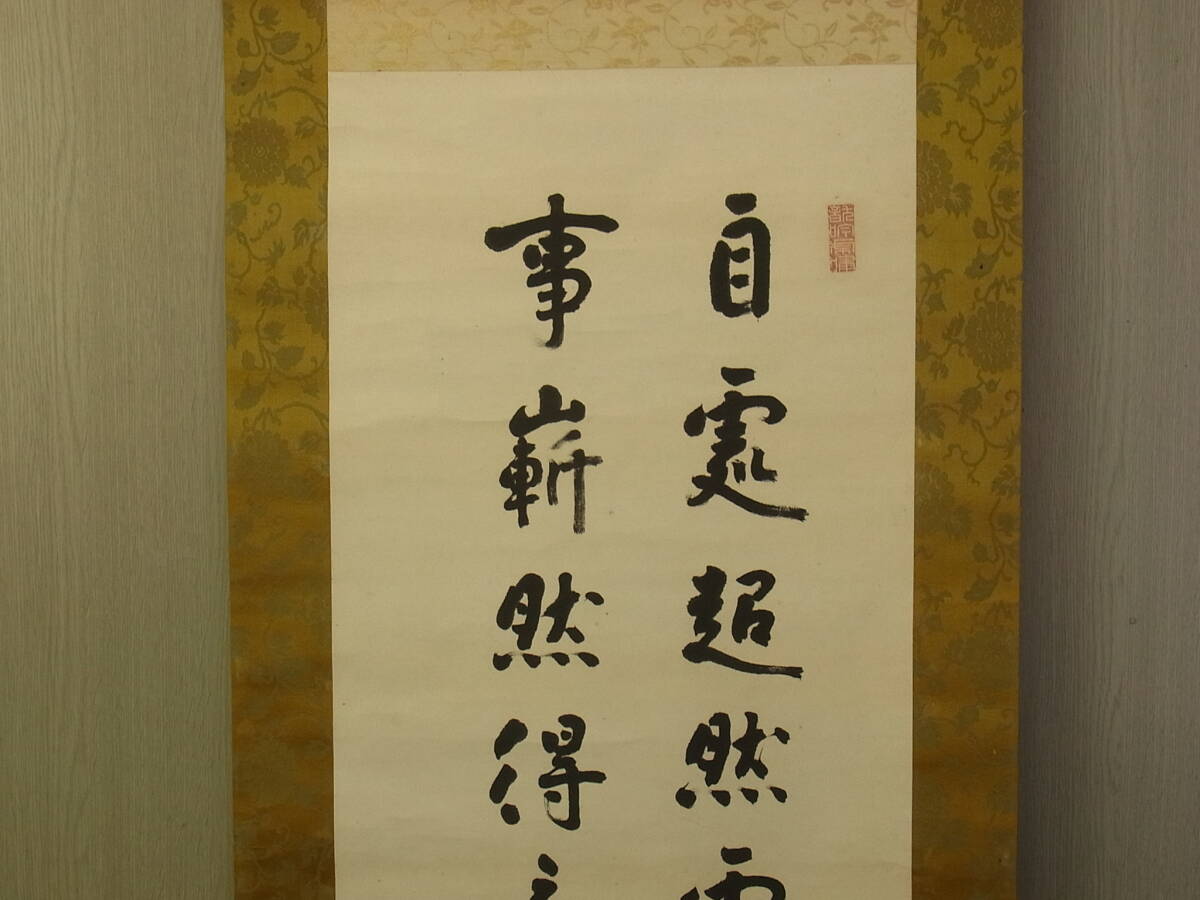 自處超然
事嶄然得